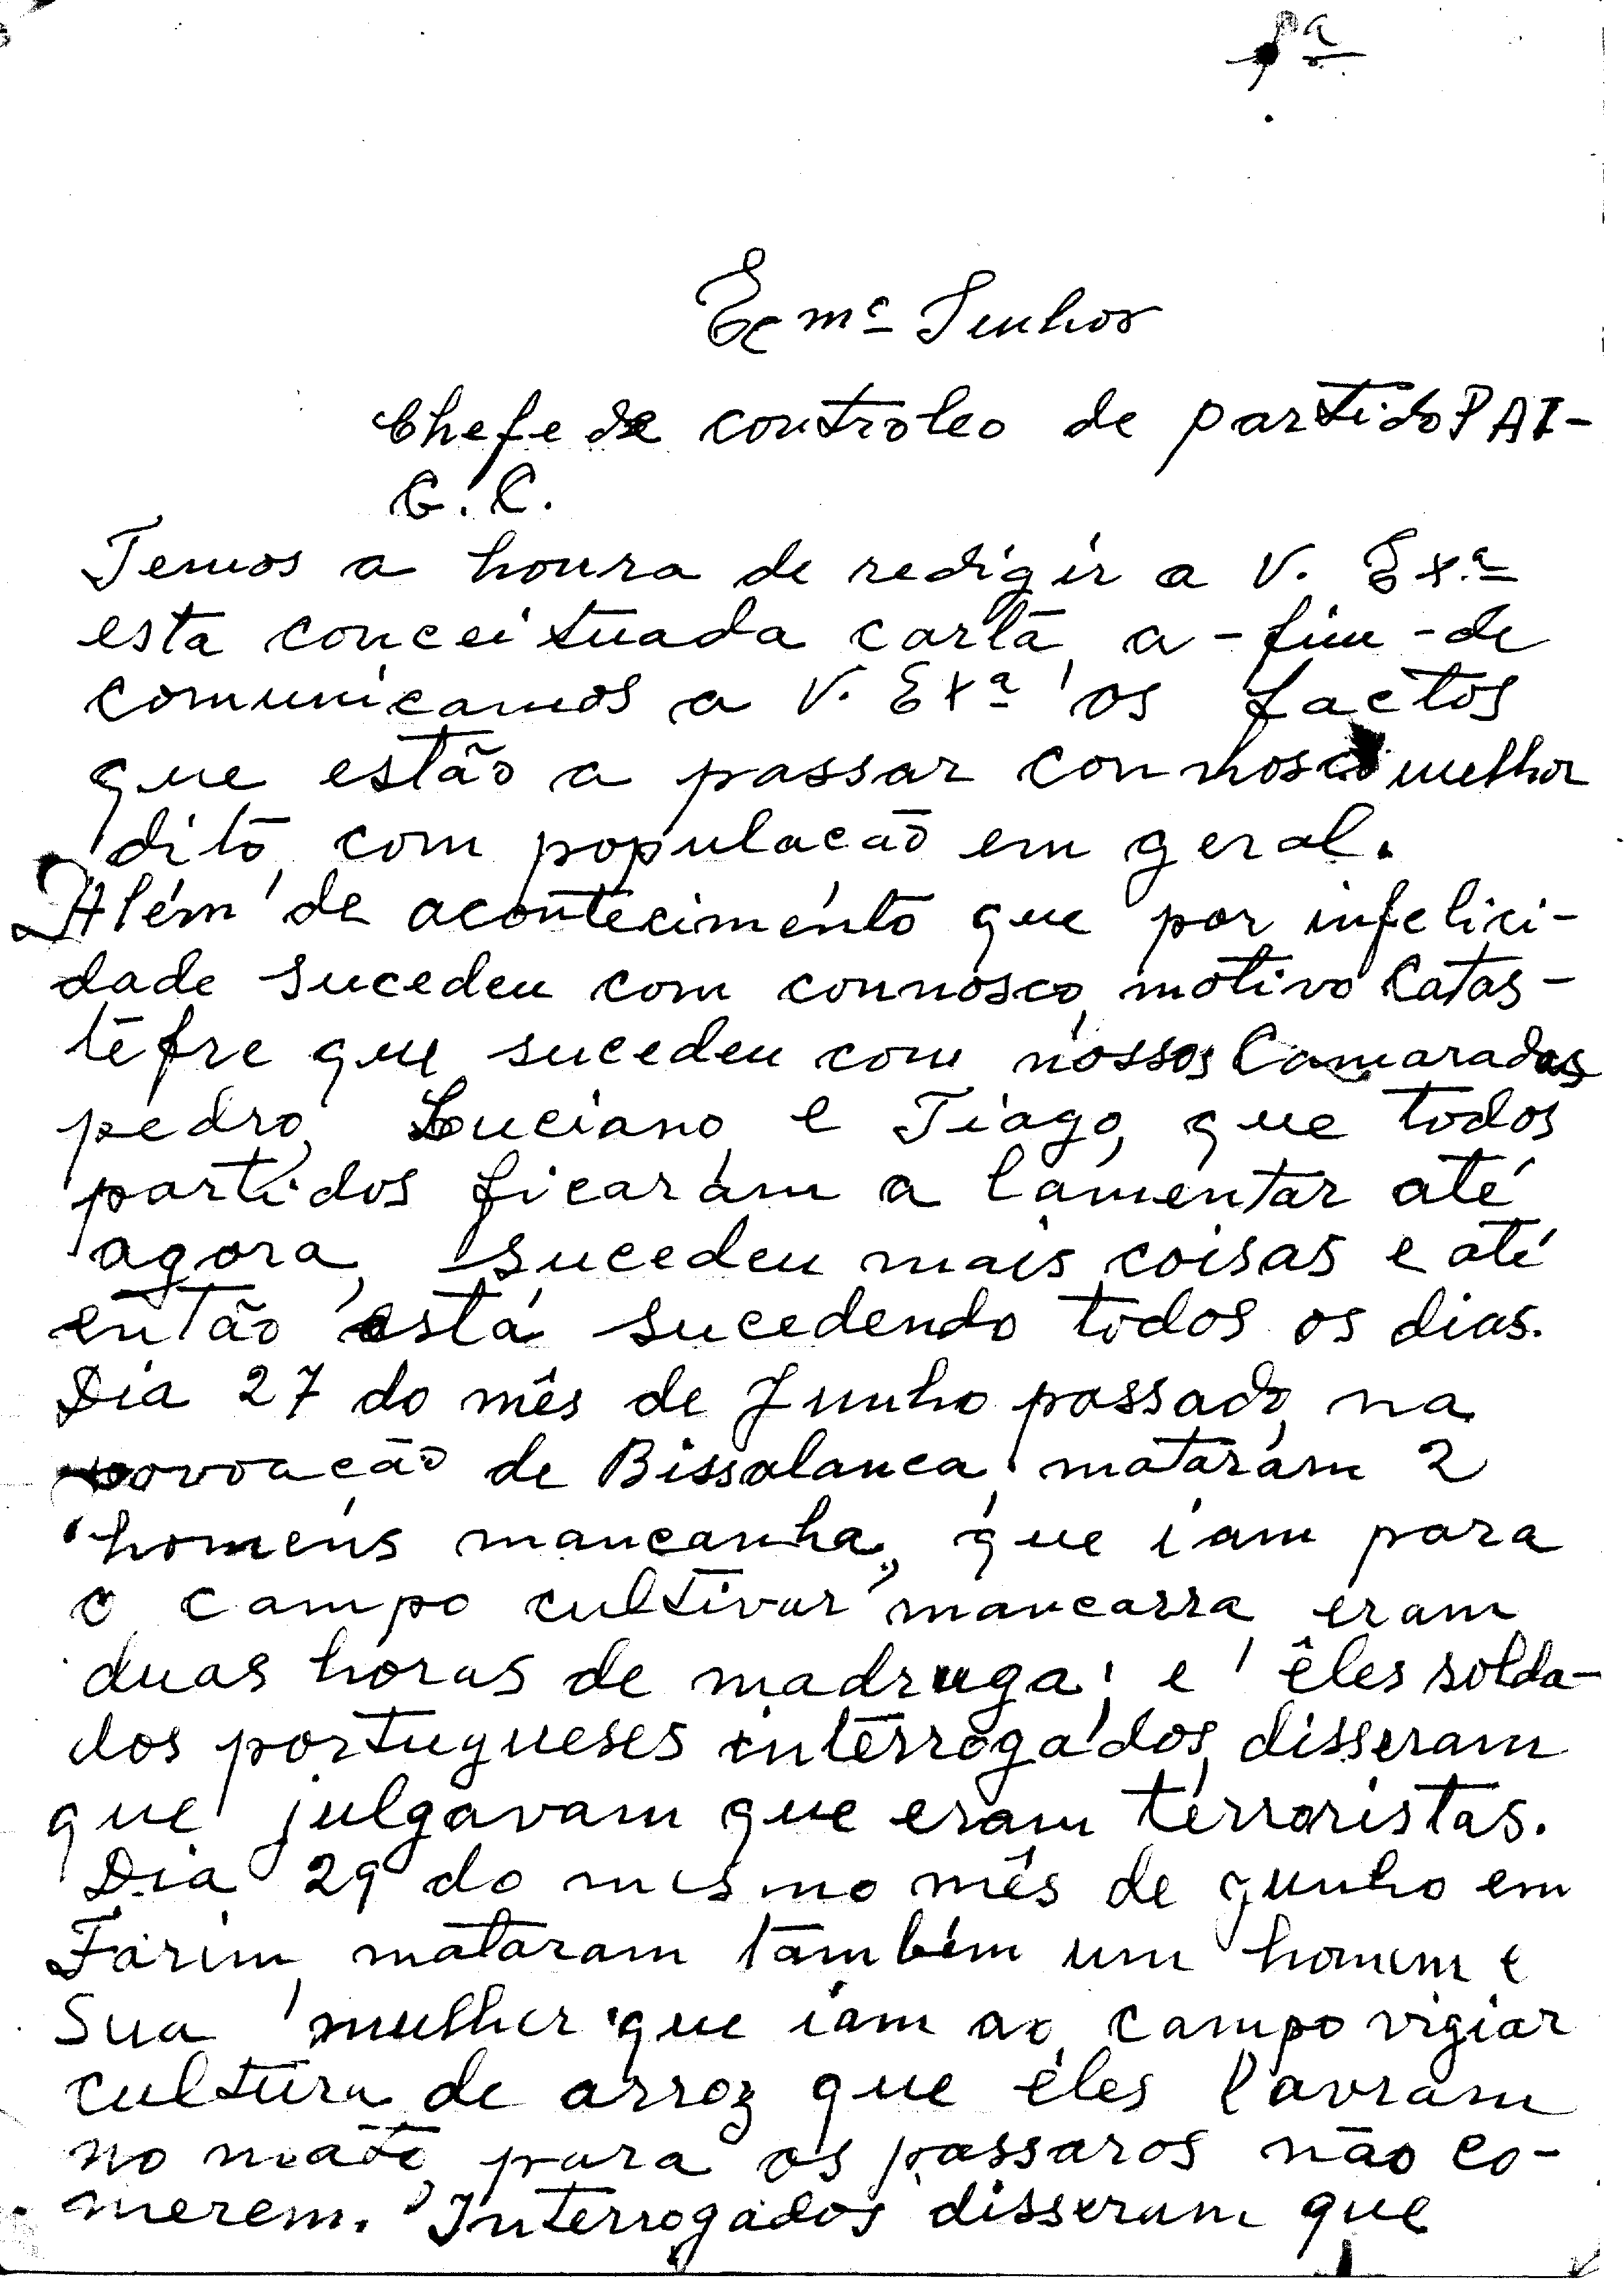 1ª
Ecmº Senhor
Chefe de controleo de partido PAI-
G. C.
Temos a honra de redigir a V. Exª
esta conceituada carta, a-fim-de
comunicamos a V. Exª, os factos
que estão a passar connosco melhor
dito, com populacão em geral.
Além de acontecimento que por infelici-
dade sucedeu com connosco, motivo Catas-
tefre que sucedeu com nossos Camaradas
pedro, Luciano, e Tiago, que todos
partidos ficaram a lamentar até
agora, sucedeu mais coisas e até
então está sucedendo todos os dias.
Dia 27 do mês de Junho passado, na
povoacão de Bissalanca, mataram 2
homens mancanha, que iam para
o campo cultivar mancarra, eram
duas horas de madruga; e êles solda-
dos portugueses interrogados, disseram
que julgavam que eram terroristas.
Dia 29 do mesmo mês de junho em
Farim, mataram também um homem e
Sua mulher que iam ao campo vigiar
cultura de arroz que êles lavram
no mato, para os passaros não co-
merem. Interrogados disseram que